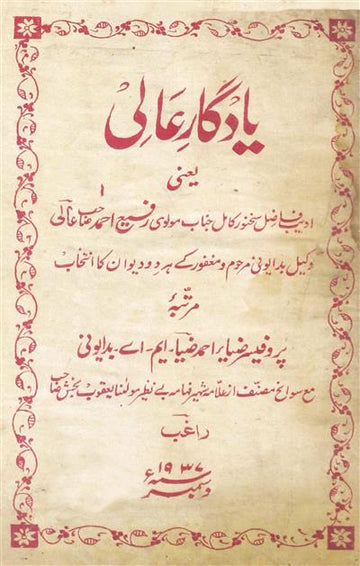 یادگارِ عالی
یعنی
ادیب فاضل سخنور کامل جناب مولوی رفیع احمد صاحب عالی
وکیل بدایونی مرحوم و مغفور کے ہر دو دیوان کا انتخاب
مرتبہٴ
پروفیسر ضیاء احمد ضیا۔ ایم۔ اے۔ بدایونی
مع سوانح مصنف از علامہ شہیر فہامہ بے نظیر مولٰنا یعقوب بخش صاحب
راغب
دسمبر ۱۹۳۷ء